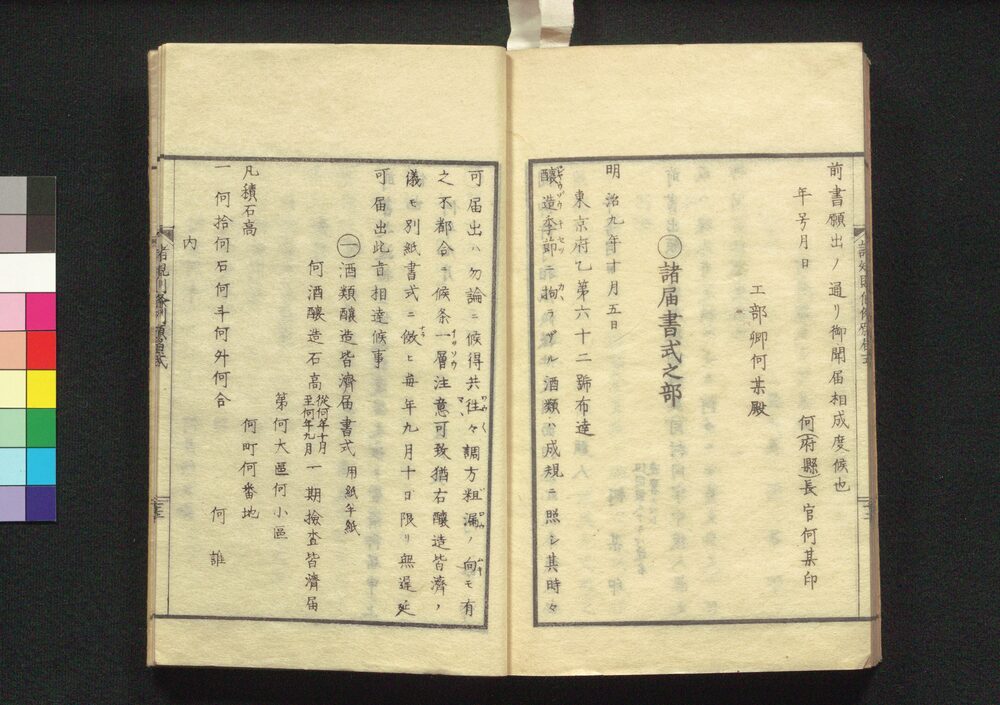 前書願出ノ通リ御聞届相成度候也
年号月日
何府縣長官何某印
工部卿何某殿
諸届書式之部
明治九年十月五日
東京府乙第六十二號布達
醸造季節ニ拘ラザル酒類ハ成規ニ照シ其時々
可届出ハ勿論ニ候得共往々調方粗漏ノ向モ有
之不都合ニ候条一層注意可致猶右醸造皆濟ノ
儀モ別紙書式ニ倣ヒ毎年九月十日限リ無遅延
可届出此旨相達候事
㊀酒類醸造皆濟届書式 用紙半紙
何酒醸造石高 從何年十月至何年九月 一期檢査皆濟届
第何大區何小區
何町何番地
何 誰
凡積石高
一何拾何石何斗何升何合
内